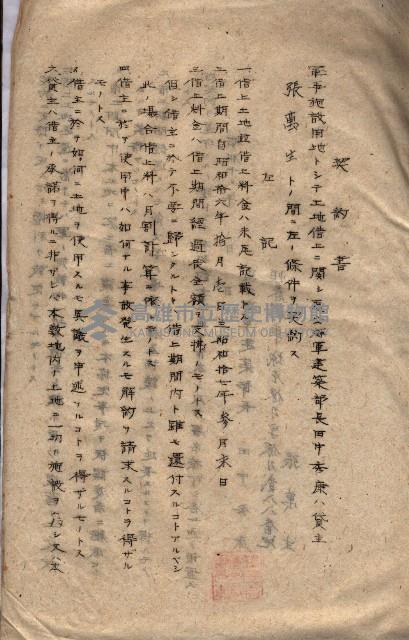 契約書
軍事施設用地トシテ土地借上ニ関シ
軍建築部長田中
康ハ貸主
張萬生トノ間ニ左ノ條件ヲ契約ス
左記
一借上土地竝借上料金ハ末尾記載
二借上期間自昭和拾六年拾月
至昭和拾七年參月末日
三借上料金ハ借上期間經過後全額支拂フモノトス
但シ借主ニ於テ不要ニ歸シタルトキハ借上期間内ト雖モ還付スルコトアルベシ
此ノ場合借上料ハ月割計算ニ依ルモノトス
四借主ニ於テ使用中ハ如何ナル事故發生スルモ解約ヲ請求スルコトヲ得ザル
モノトス
五借主ニ於テ如何ニ土地ヲ使用スルモ異議ヲ申述フルコトヲ得ザルモノトス
六貸主ハ借主ノ承諾ヲ得ルニ非ザレバ本敷地内ノ土地ニ一切ノ施設ヲ
又ハ本
高雄市立歷史博物館
KAOHSIUNG MUSEUM OF HISTORY